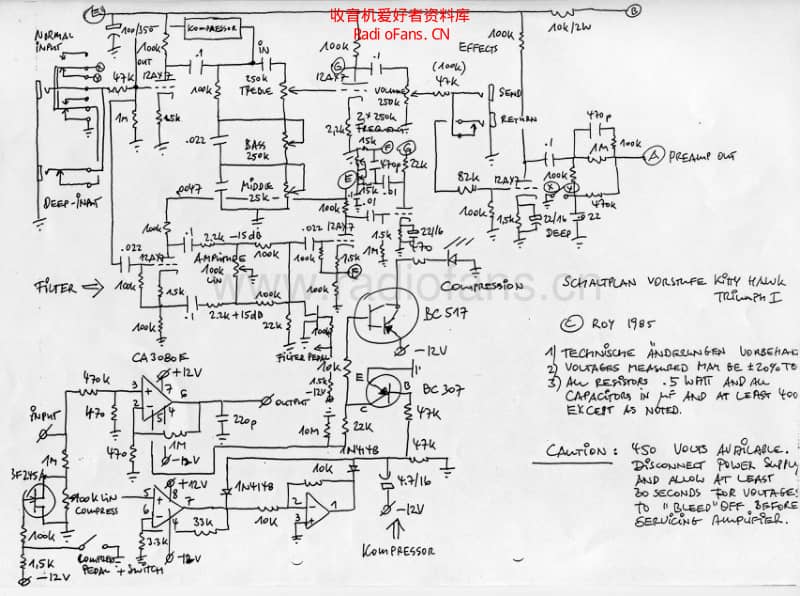 收音机爱好者资料库
Radi oFans. CN
www.radiofans.cn
NORMAL
INPUT
100/350
KOMPRESSOR
10K/2W
B
100k
OUT
.1
IN
100k
G
.1
EFFECTS
100k
47K
12AX7
250k
TREBLE
12AX7
VOLUME
250k
(100k)
47K
SEND
RETURN
470p
1m
1.5k
100k
2,2k
2 x 250k
FREQUENT.
.022
BASS
250k
.1
1M
100k
A
PREAMP OUT
F
G
E
15k
470p
22k
.0047
MIDDLE
25k
.01
82k
12AX7
100k
X
Y
DEEP-INPUT
100k
1,5k
22/16
DEEP
22
470k
.022
12AX7
.1
2.2k
-15dB
100k
.022
12AX7
22/16
470
1M
1.5k
AMPLITUDE
100k
LIN
100k
FILTER
1.5k
.1
2.2k +15dB
100k
22k
100k
COMPRESSION
SCHALTPLAN VORSTUFE KITTY HAWK
TRIUMPH I
© ROY 1985
FILTER PEDAL
BC 517
-12V
1) TECHNISCHE ÄNDERUNGEN VORBEHAL
2) VOLTAGES MEASURED MAY BE ±20% TO
3) ALL RESISTORS .5 WATT AND ALL
CAPACITORS IN µF AND AT LEAST 400
EXCEPT AS NOTED.
CA3080E
+12V
470k
3
7
6
2
5
4
OUTPUT
10k
1.5k
-12V
E
C
B
BC 307
INPUT
470
220p
10M
22k
47K
1M
1M
470
-12V
1N4148
47K
CAUTION : 450 VOLTS AVAILABLE.
DISCONNECT POWER SUPPLY
AND ALLOW AT LEAST
30 SECONDS FOR VOLTAGES
TO "BLEED" OFF BEFORE
SERVICING AMPLIFIER.
BF245A
+12V
1N4148
10k
4.7/16
100k LIN
COMPRESS
5
8
7
6
4
33k
10k
2
3
1
-12V
100k
3.3k
-12V
1,5k
-12V
PEDAL + SWITCH
KOMPRESSOR